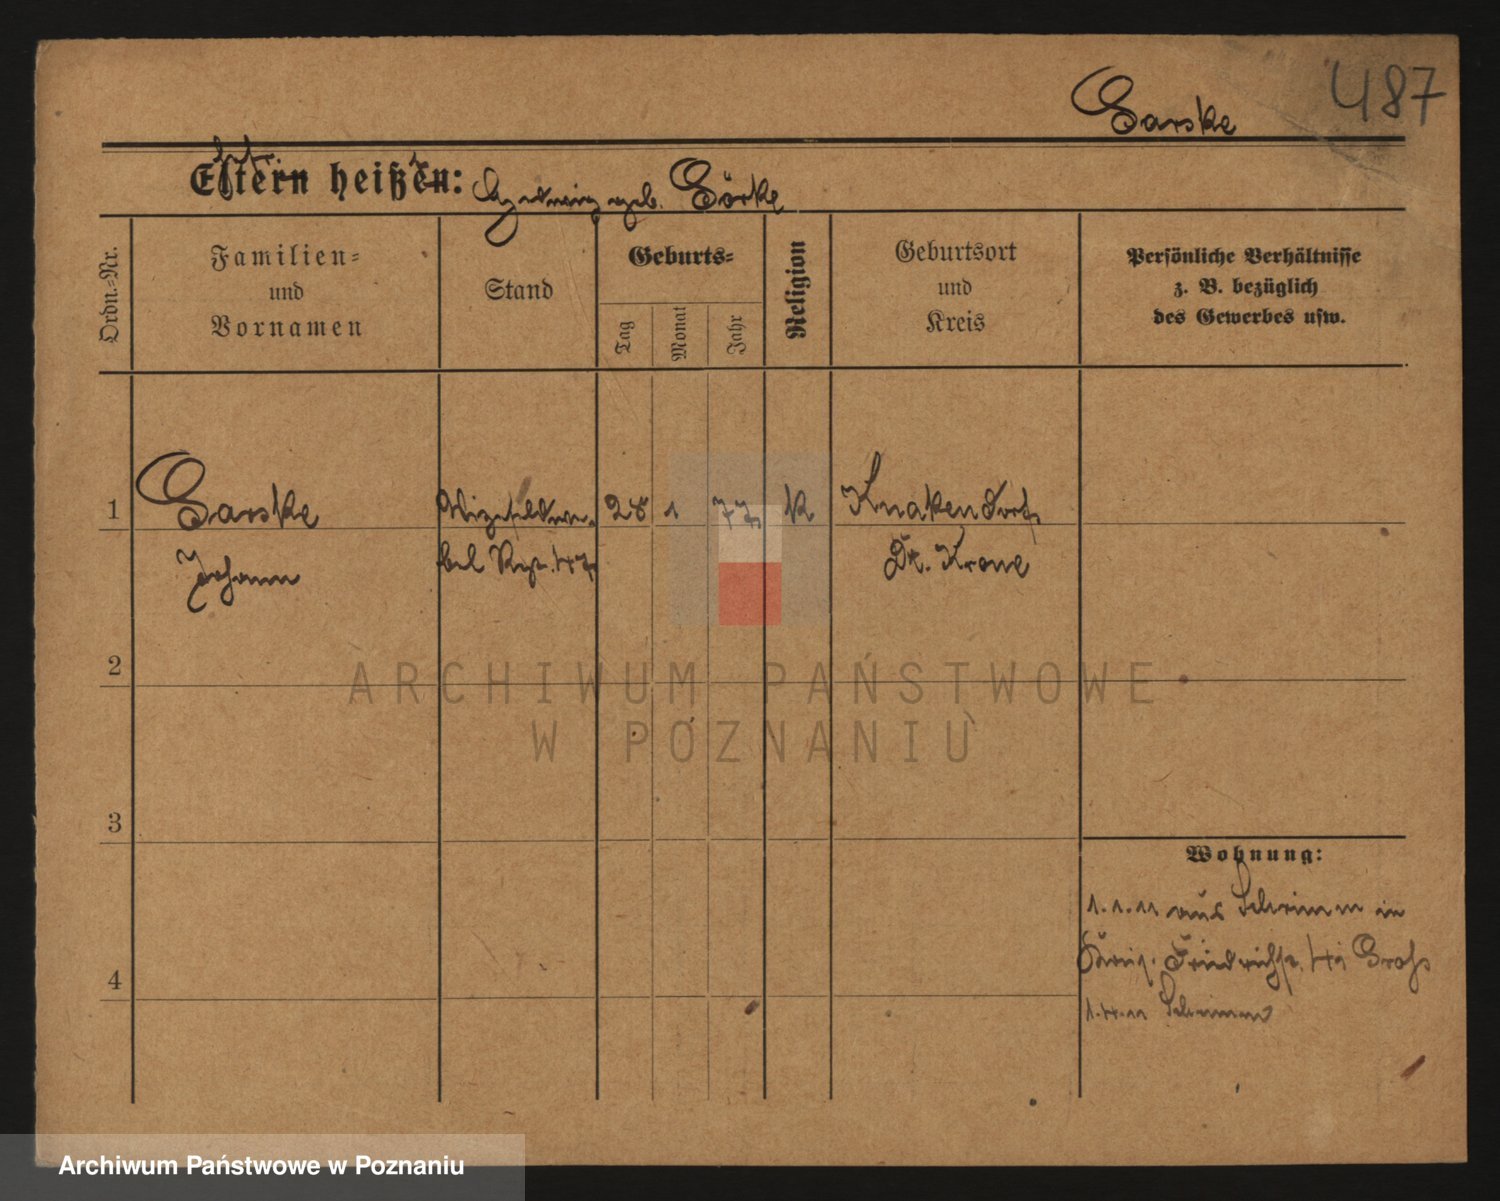 487
Garske
Eltern heißen: Hedwig geb. Görke
Ordn.-Nr.
Familien-
und
Vornamen
Stand
Geburts-
Tag
Monat
Jahr
Religion
Geburtsort
und
Kreis
Persönliche Verhältnisse
z. B. bezüglich
des Gewerbes usw.
1
Garske
Vizefeldwe-
28
1
77
K
Knakendorf
Johann
bel Rgt. 47
Dt. Krone
2
3
4
Wohnung:
1.1.11 aus Schrimm in
Friedrichstr. Groß
1.4.11 Schrimm
ARCHIWUM PAŃSTWOWE
W POZNANIU
Archiwum Państwowe w Poznaniu